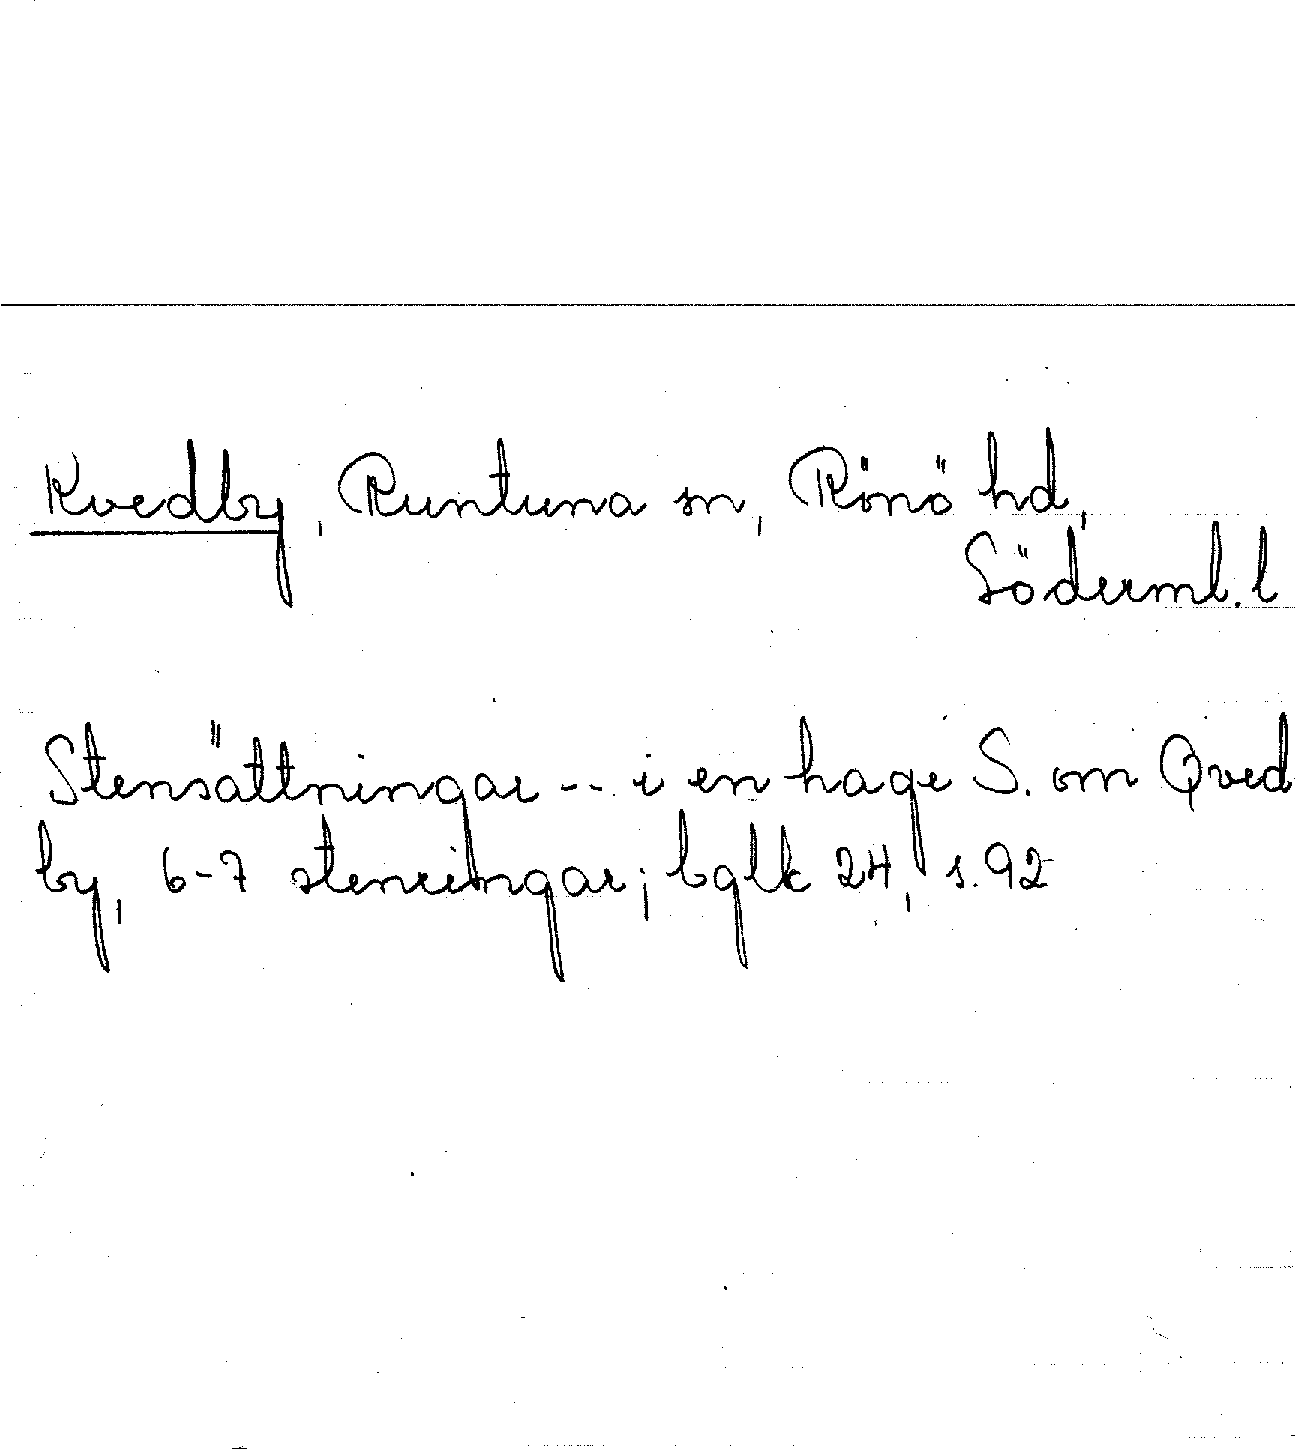 Kvedby, Runtuna sn, Rönö hd,
Söderml. l
Stensättningar -- i en hage S. om Qved
by, 6-7 stenringar; bglk 24, s. 92